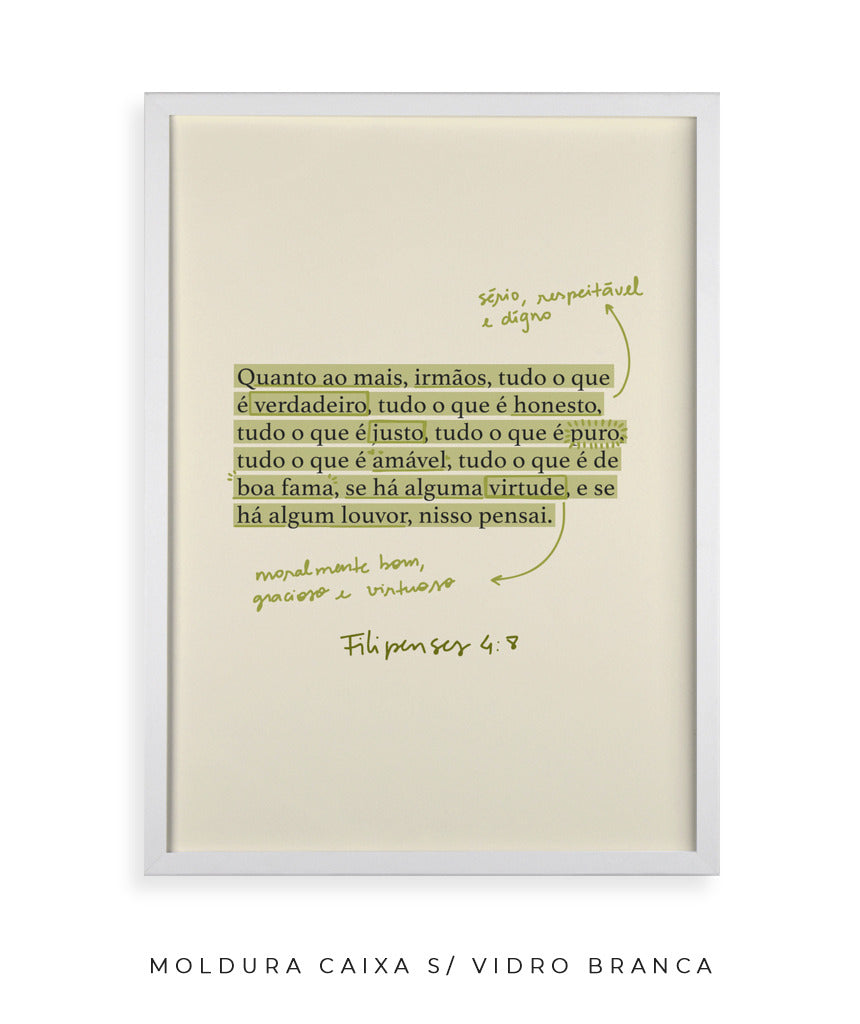 sério, respeitável
e digno
Quanto ao mais, irmãos, tudo o que
é verdadeiro, tudo o que é honesto,
tudo o que é justo, tudo o que é puro,
tudo o que é amável, tudo o que é de
boa fama, se há alguma virtude, e se
há algum louvor, nisso pensai.
moralmente bom,
gracioso e virtuoso
Filipenses 4:8
MOLDURA CAIXA S/ VIDRO BRANCA